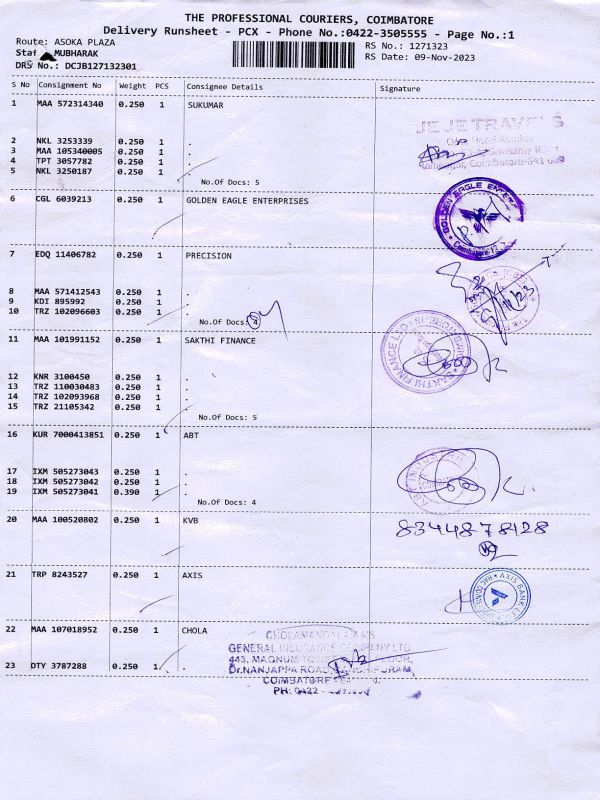 THE PROFESSIONAL COURIERS, COIMBATORE
Delivery Runsheet - PCX - Phone No.:0422-3505555 - Page No.:1
Route: ASOKA PLAZA RS No.: 1271323
Staf MUBHARAK RS Date: 09-Nov-2023
DRS No.: DCJB127132301
S No Consignment No Weight PCS Consignee Details Signature
1 MAA 572314340 0.250 1 SUKUMAR
JEJE TRAVELS
2 NKL 3253339 0.250 1 .
3 MAA 105340005 0.250 1 .
4 TPT 3057782 0.250 1 .
5 NKL 3250187 0.250 1 .
No.Of Docs: 5
6 CGL 6039213 0.250 1 GOLDEN EAGLE ENTERPRISES
GOLDEN EAGLE
Coimbatore
7 EDQ 11406782 0.250 1 PRECISION
8 MAA 571412543 0.250 1 .
9 KDI 895992 0.250 1 .
10 TRZ 102096603 0.250 1 .
No.Of Docs: 4
11 MAA 101991152 0.250 1 SAKTHI FINANCE
SAKTHI FINANCE LTD
12 KNR 3100450 0.250 1 .
13 TRZ 110030483 0.250 1 .
14 TRZ 102093968 0.250 1 .
15 TRZ 21105342 0.250 1 .
No.Of Docs: 5
16 KUR 7000413851 0.250 1 ABT
17 IXM 505273043 0.250 1 .
18 IXM 505273042 0.250 1 .
19 IXM 505273041 0.390 1 .
No.Of Docs: 4
20 MAA 100520802 0.250 1 KVB
8344878128
21 TRP 8243527 0.250 1 AXIS
AXIS BANK LTD
22 MAA 107018952 0.250 1 CHOLA
CHOLAMANDALAM MS
GENERAL INSURANCE COMPANY LTD.
23 DTY 3787288 0.250 1 .
443, MAGNUM
Dr.NANJAPPA ROAD
COIMBATORE
PH: 0422